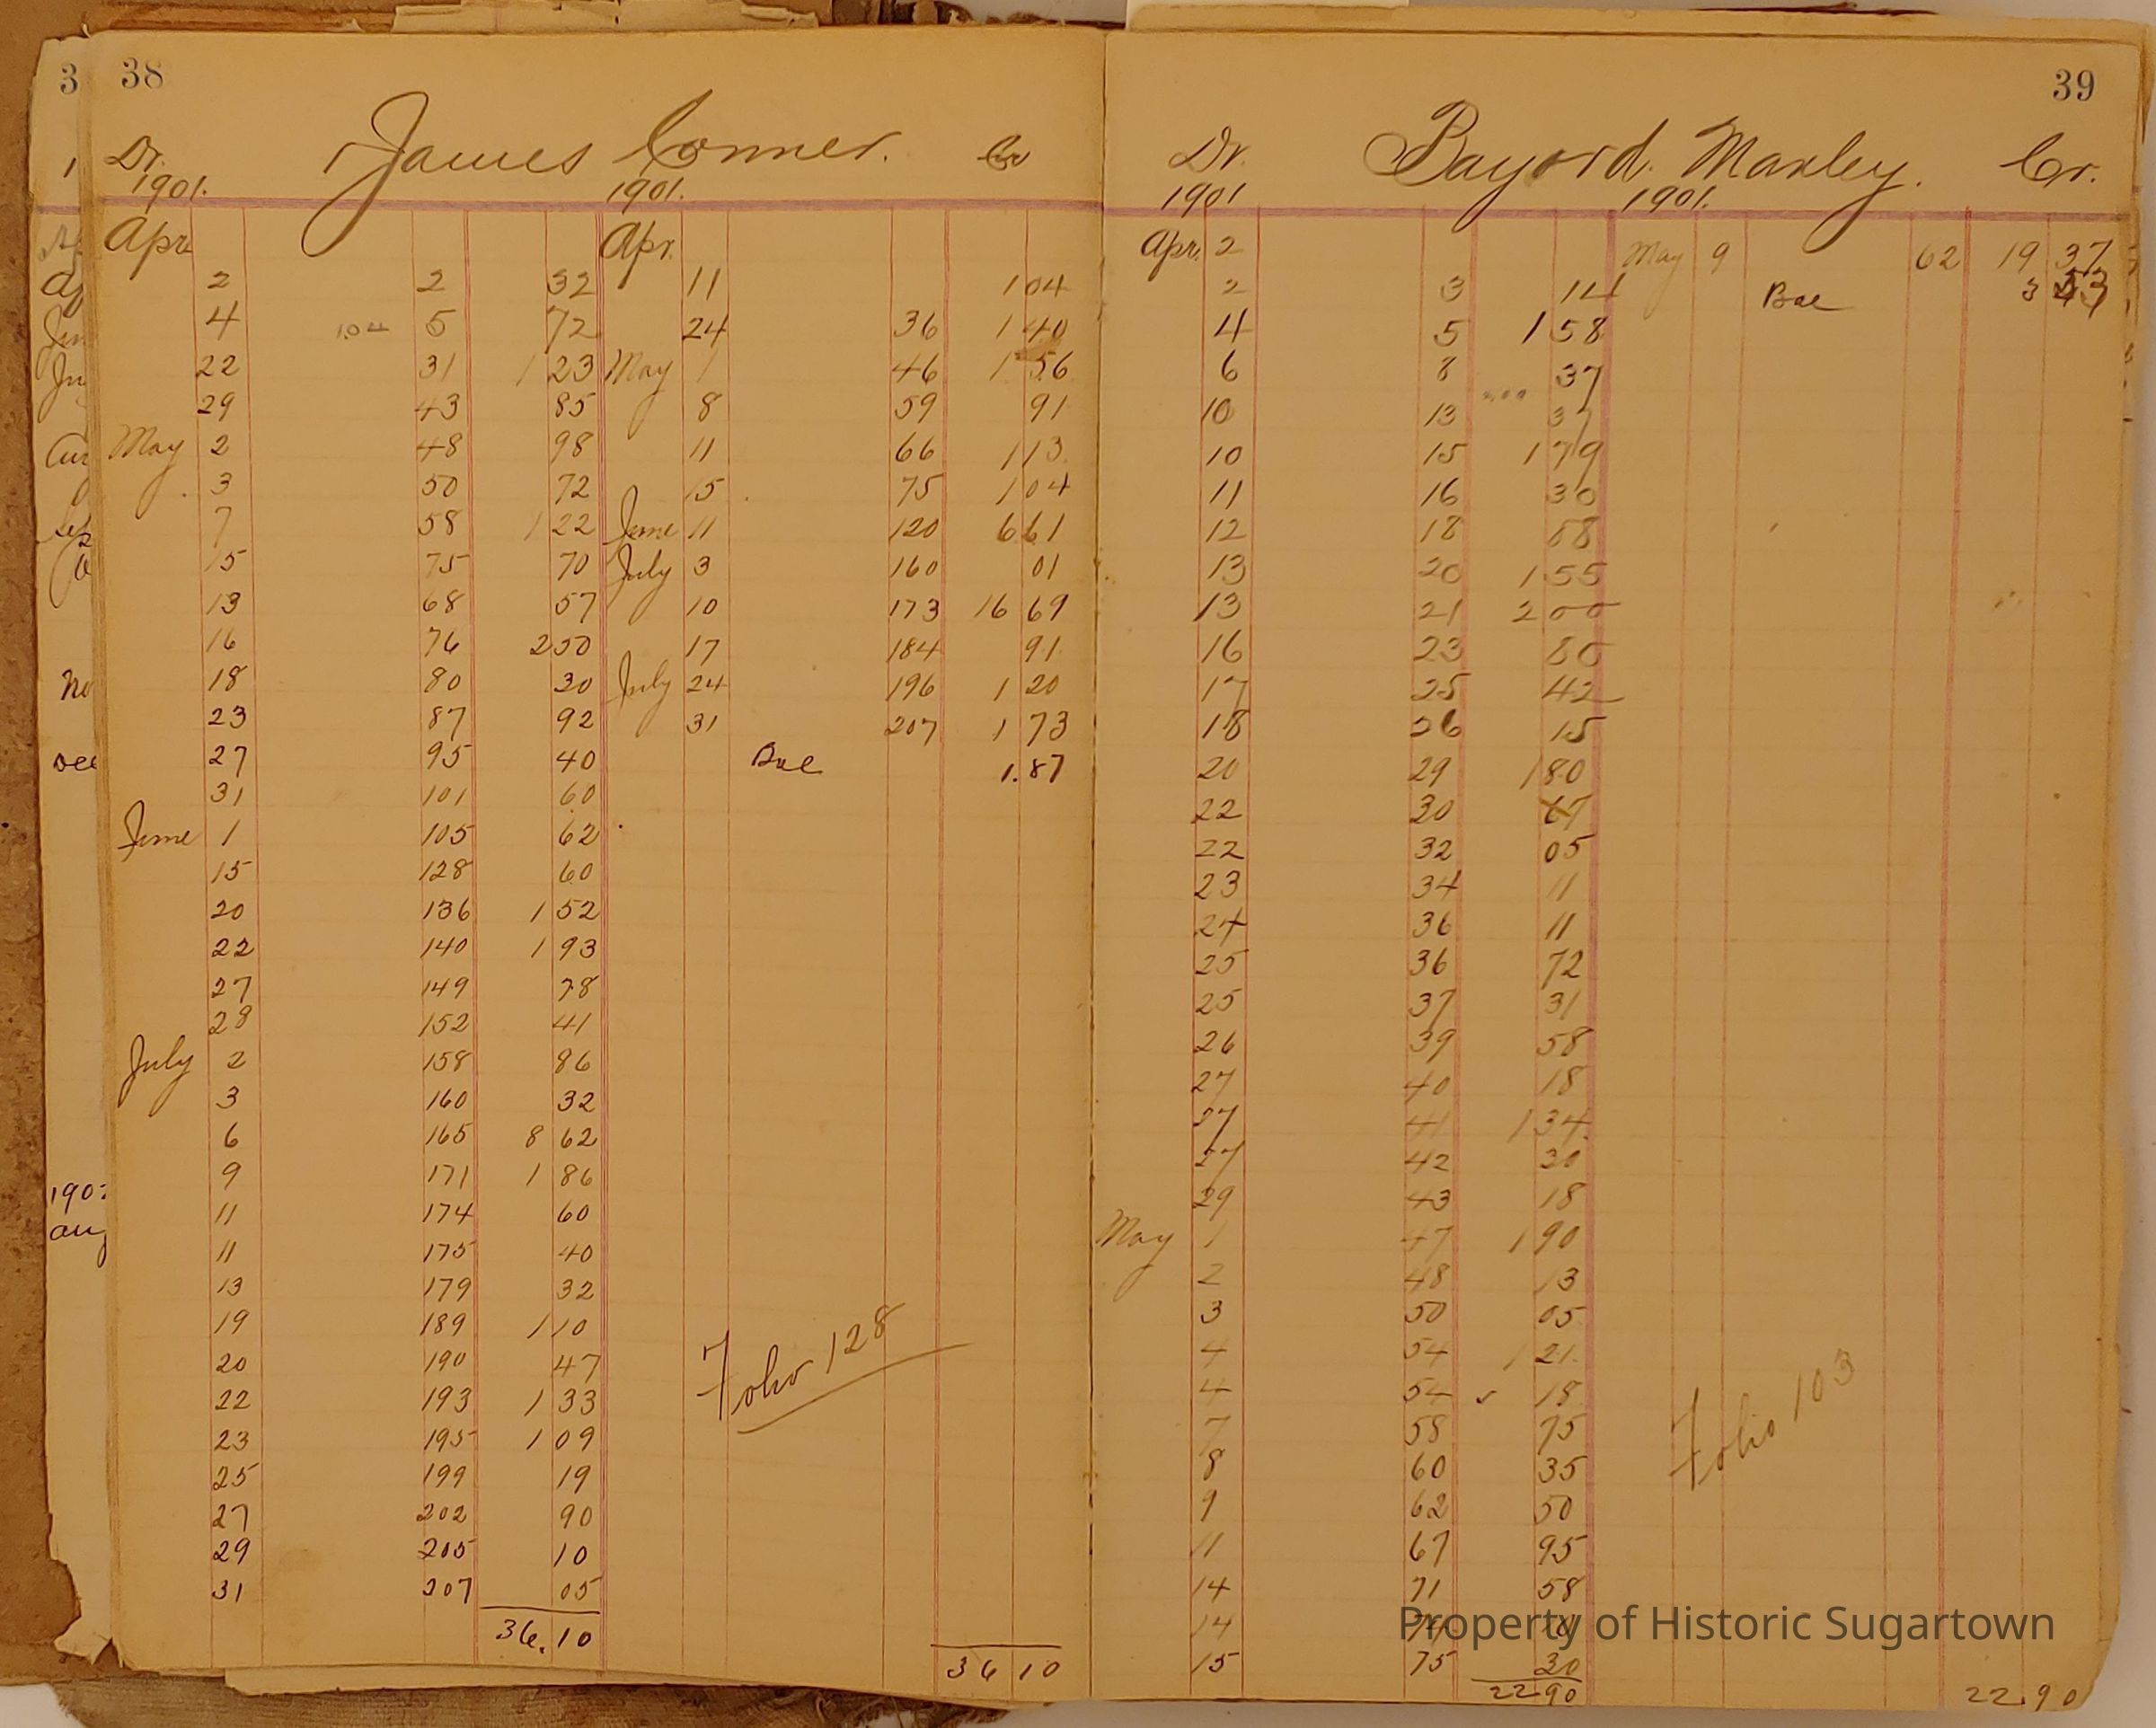 3 38
Dr. James Conner. Cr
1901. 1901.
Apr Apr.
2 2 32 11 1 04
4 1.04 5 72 24 36 1 40
22 31 1 23 May 1 46 1 56
29 43 85 8 59 91
May 2 48 98 11 66 1 13
3 50 72 15 75 1 04
7 58 1 22 June 11 120 6 61
15 75 70 July 3 160 01
13 68 57 10 173 16 69
16 76 2 50 17 184 91
18 80 30 July 24 196 1 20
23 87 92 31 207 1 73
27 95 40 Bal 1.87
31 101 60
June 1 105 62
15 128 60
20 136 1 52
22 140 1 93
27 149 78
28 152 41
July 2 158 86
3 160 32
6 165 8 62
9 171 1 86
11 174 60
11 175 40
13 179 32
19 189 1 10
20 190 47
22 193 1 33
23 195 1 09
25 199 19
27 202 90
29 205 10
31 207 05
36.10
36 10
Folio 128
39
Dr. Bayord Manley. Cr.
1901 1901.
Apr. 2 May 9 62 19 37
2 3 14 Bal 3 53
4 5 1 58
6 8 37
10 13 37
10 15 1 79
11 16 30
12 18 58
13 20 1 55
13 21 2 00
16 23 80
17 25 42
18 26 15
20 29 1 80
22 30
22 32 05
23 34 11
24 36 11
25 36 72
25 37 31
26 39 58
27 40 18
27 41 1 34
27 42 30
29 43 18
May 1 47 1 90
2 48 13
3 50 05
4 54 1 21
4 54 18
7 58 75
8 60 35
9 62 50
11 67 95
14 71 58
14
15 75 30
22 90
22.90
Folio 103
Property of Historic Sugartown